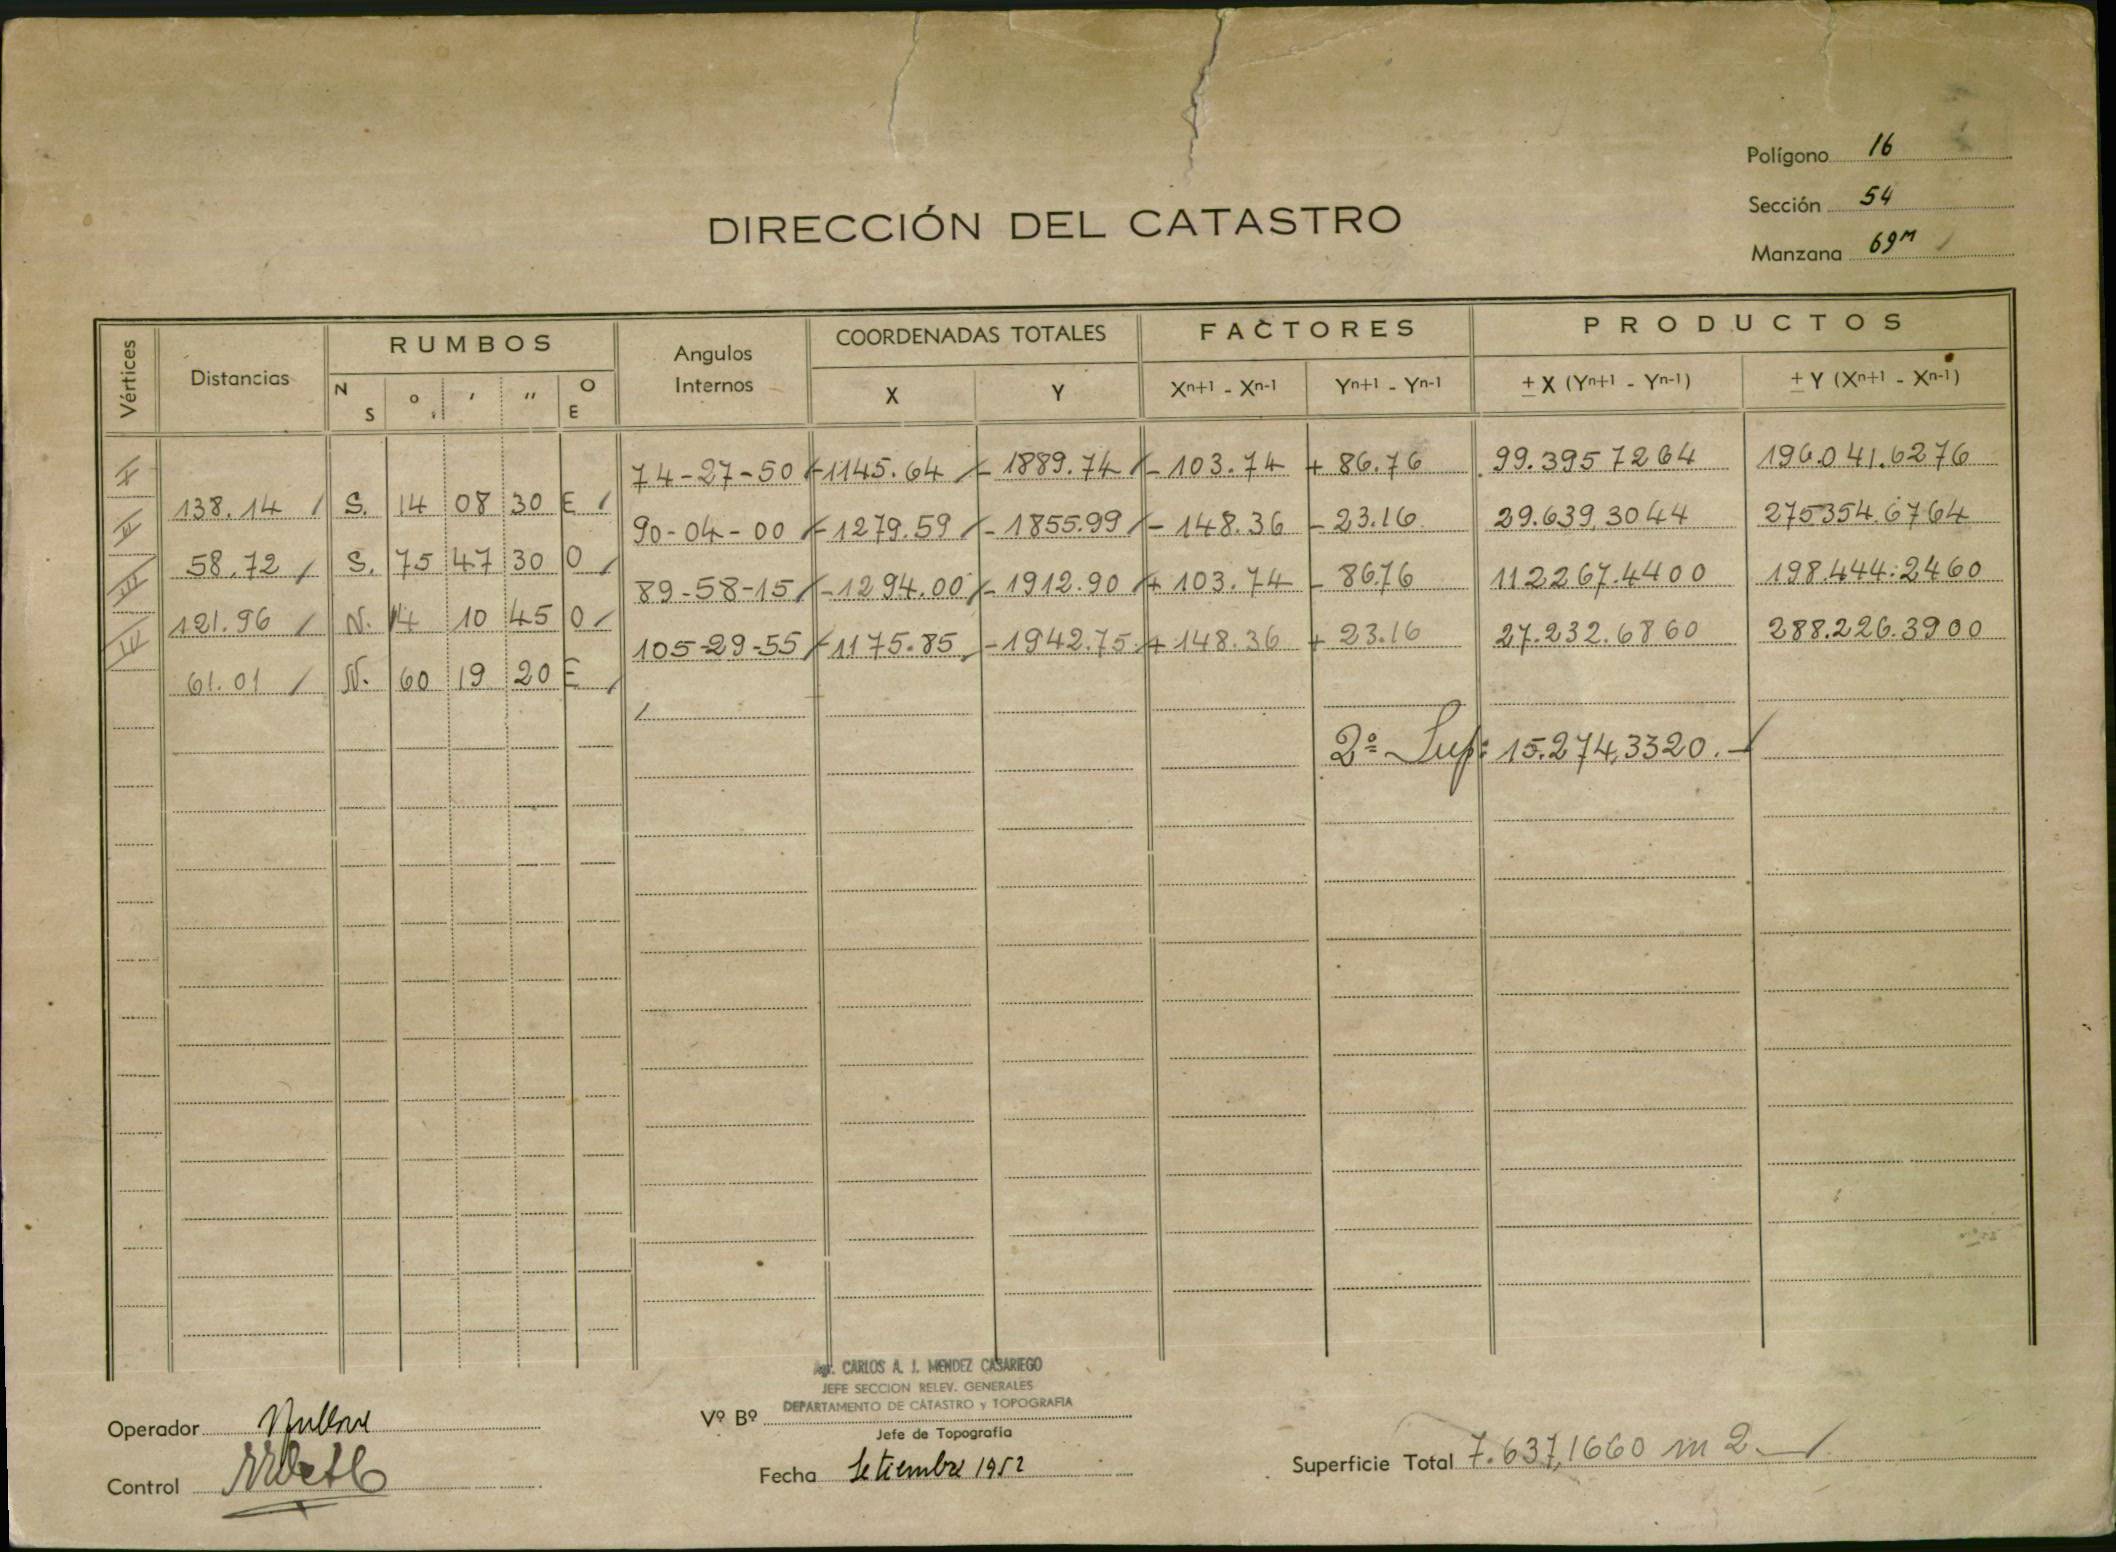 Polígono 16
Sección 54
Manzana 69M
DIRECCIÓN DEL CATASTRO
Vértices Distancias RUMBOS Angulos Internos COORDENADAS TOTALES FACTORES PRODUCTOS
N S ° ' '' O E X Y Xn+1 - Xn-1 Yn+1 - Yn-1 ± X (Yn+1 - Yn-1) ± Y (Xn+1 - Xn-1)
I 74-27-50 -1145.64 -1889.74 -103.74 +86.76 99.395 7264 196.041.6276
138.14 S. 14 08 30 E
II 90-04-00 -1279.59 -1855.99 -148.36 -23.16 29.639.3044 275354.6764
58.72 S. 75 47 30 O
III 89-58-15 -1294.00 -1912.90 +103.74 -86.76 112267.4400 198.444.2460
121.96 N. 14 10 45 O
IV 105-29-55 -1175.85 -1942.75 +148.36 +23.16 27.232.6860 288.226.3900
61.01 N. 60 19 20 E
2º Sup: 15.274,3320.-
Agr. CARLOS A. J. MENDEZ CASARIEGO
JEFE SECCION RELEV. GENERALES
DEPARTAMENTO DE CATASTRO y TOPOGRAFIA
Operador
Vº Bº
Jefe de Topografía
Control
Fecha Setiembre 1952
Superficie Total 7.637,1660 m2